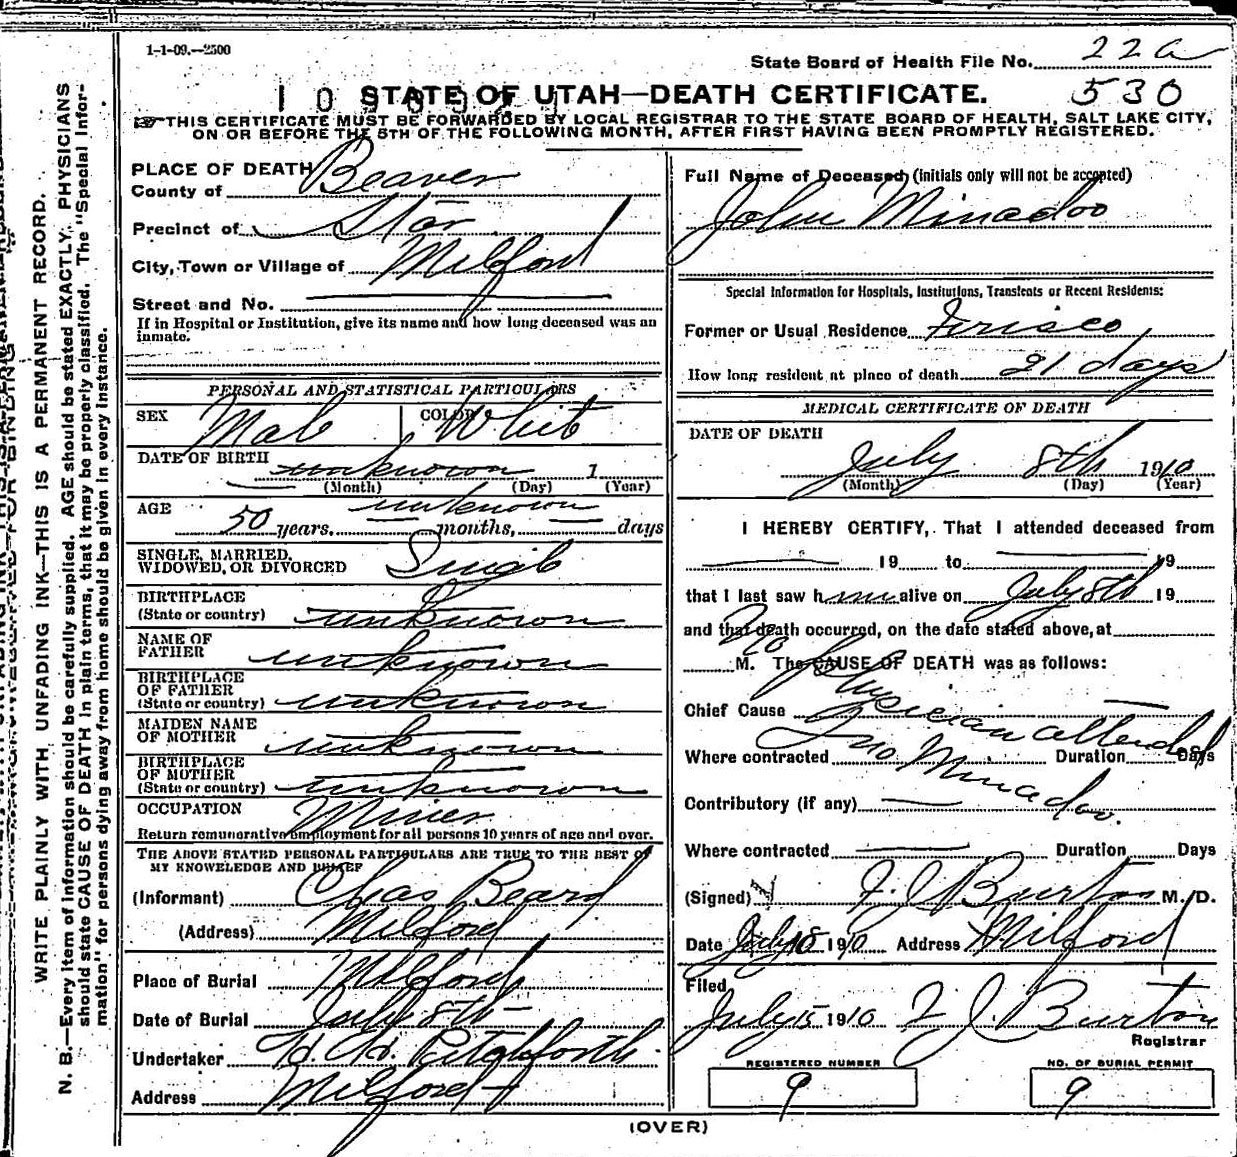 1-1-09.--2500
State Board of Health File No. 22a
STATE OF UTAH—DEATH CERTIFICATE. 530
THIS CERTIFICATE MUST BE FORWARDED BY LOCAL REGISTRAR TO THE STATE BOARD OF HEALTH, SALT LAKE CITY,
ON OR BEFORE THE 5TH OF THE FOLLOWING MONTH, AFTER FIRST HAVING BEEN PROMPTLY REGISTERED.
PLACE OF DEATH
County of Beaver
Precinct of Star
City, Town or Village of Milford
Street and No.
If in Hospital or Institution, give its name and how long deceased was an
inmate.
PERSONAL AND STATISTICAL PARTICULARS
SEX Male COLOR White
DATE OF BIRTH unknown 1
(Month) (Day) (Year)
AGE unknown
50 years, months, days
SINGLE, MARRIED,
WIDOWED, OR DIVORCED Single
BIRTHPLACE
(State or country) unknown
NAME OF
FATHER unknown
BIRTHPLACE
OF FATHER
(State or country) unknown
MAIDEN NAME
OF MOTHER unknown
BIRTHPLACE
OF MOTHER
(State or country) unknown
OCCUPATION Miner
Return remunerative employment for all persons 10 years of age and over.
THE ABOVE STATED PERSONAL PARTICULARS ARE TRUE TO THE BEST OF
MY KNOWLEDGE AND BELIEF
(Informant) Chas Beard
(Address) Milford
Place of Burial Milford
Date of Burial July 8th
Undertaker
Address Milford
Full Name of Deceased (initials only will not be accepted)
John Minadoo
Special Information for Hospitals, Institutions, Transients or Recent Residents:
Former or Usual Residence Frisco
How long resident at place of death 21 days
MEDICAL CERTIFICATE OF DEATH
DATE OF DEATH
July 8th 1910
(Month) (Day) (Year)
I HEREBY CERTIFY, That I attended deceased from
19 to 19
that I last saw him alive on July 8th 19
and that death occurred, on the date stated above, at
M. The CAUSE OF DEATH was as follows:
No physician attended
Jno Minadoo.
Chief Cause
Where contracted Duration Days
Contributory (if any)
Where contracted Duration Days
(Signed) F. J. Burton M. D.
Date July 1910 Address Milford
Filed
July 15 1910 F J. Burton
Registrar
REGISTERED NUMBER
9
NO. OF BURIAL PERMIT
9
(OVER)
WRITE PLAINLY WITH UNFADING INK—THIS IS A PERMANENT RECORD.
N. B.—Every item of information should be carefully supplied. AGE should be stated EXACTLY. PHYSICIANS
should state CAUSE OF DEATH in plain terms, that it may be properly classified. The "Special Infor-
mation" for persons dying away from home should be given in every instance.